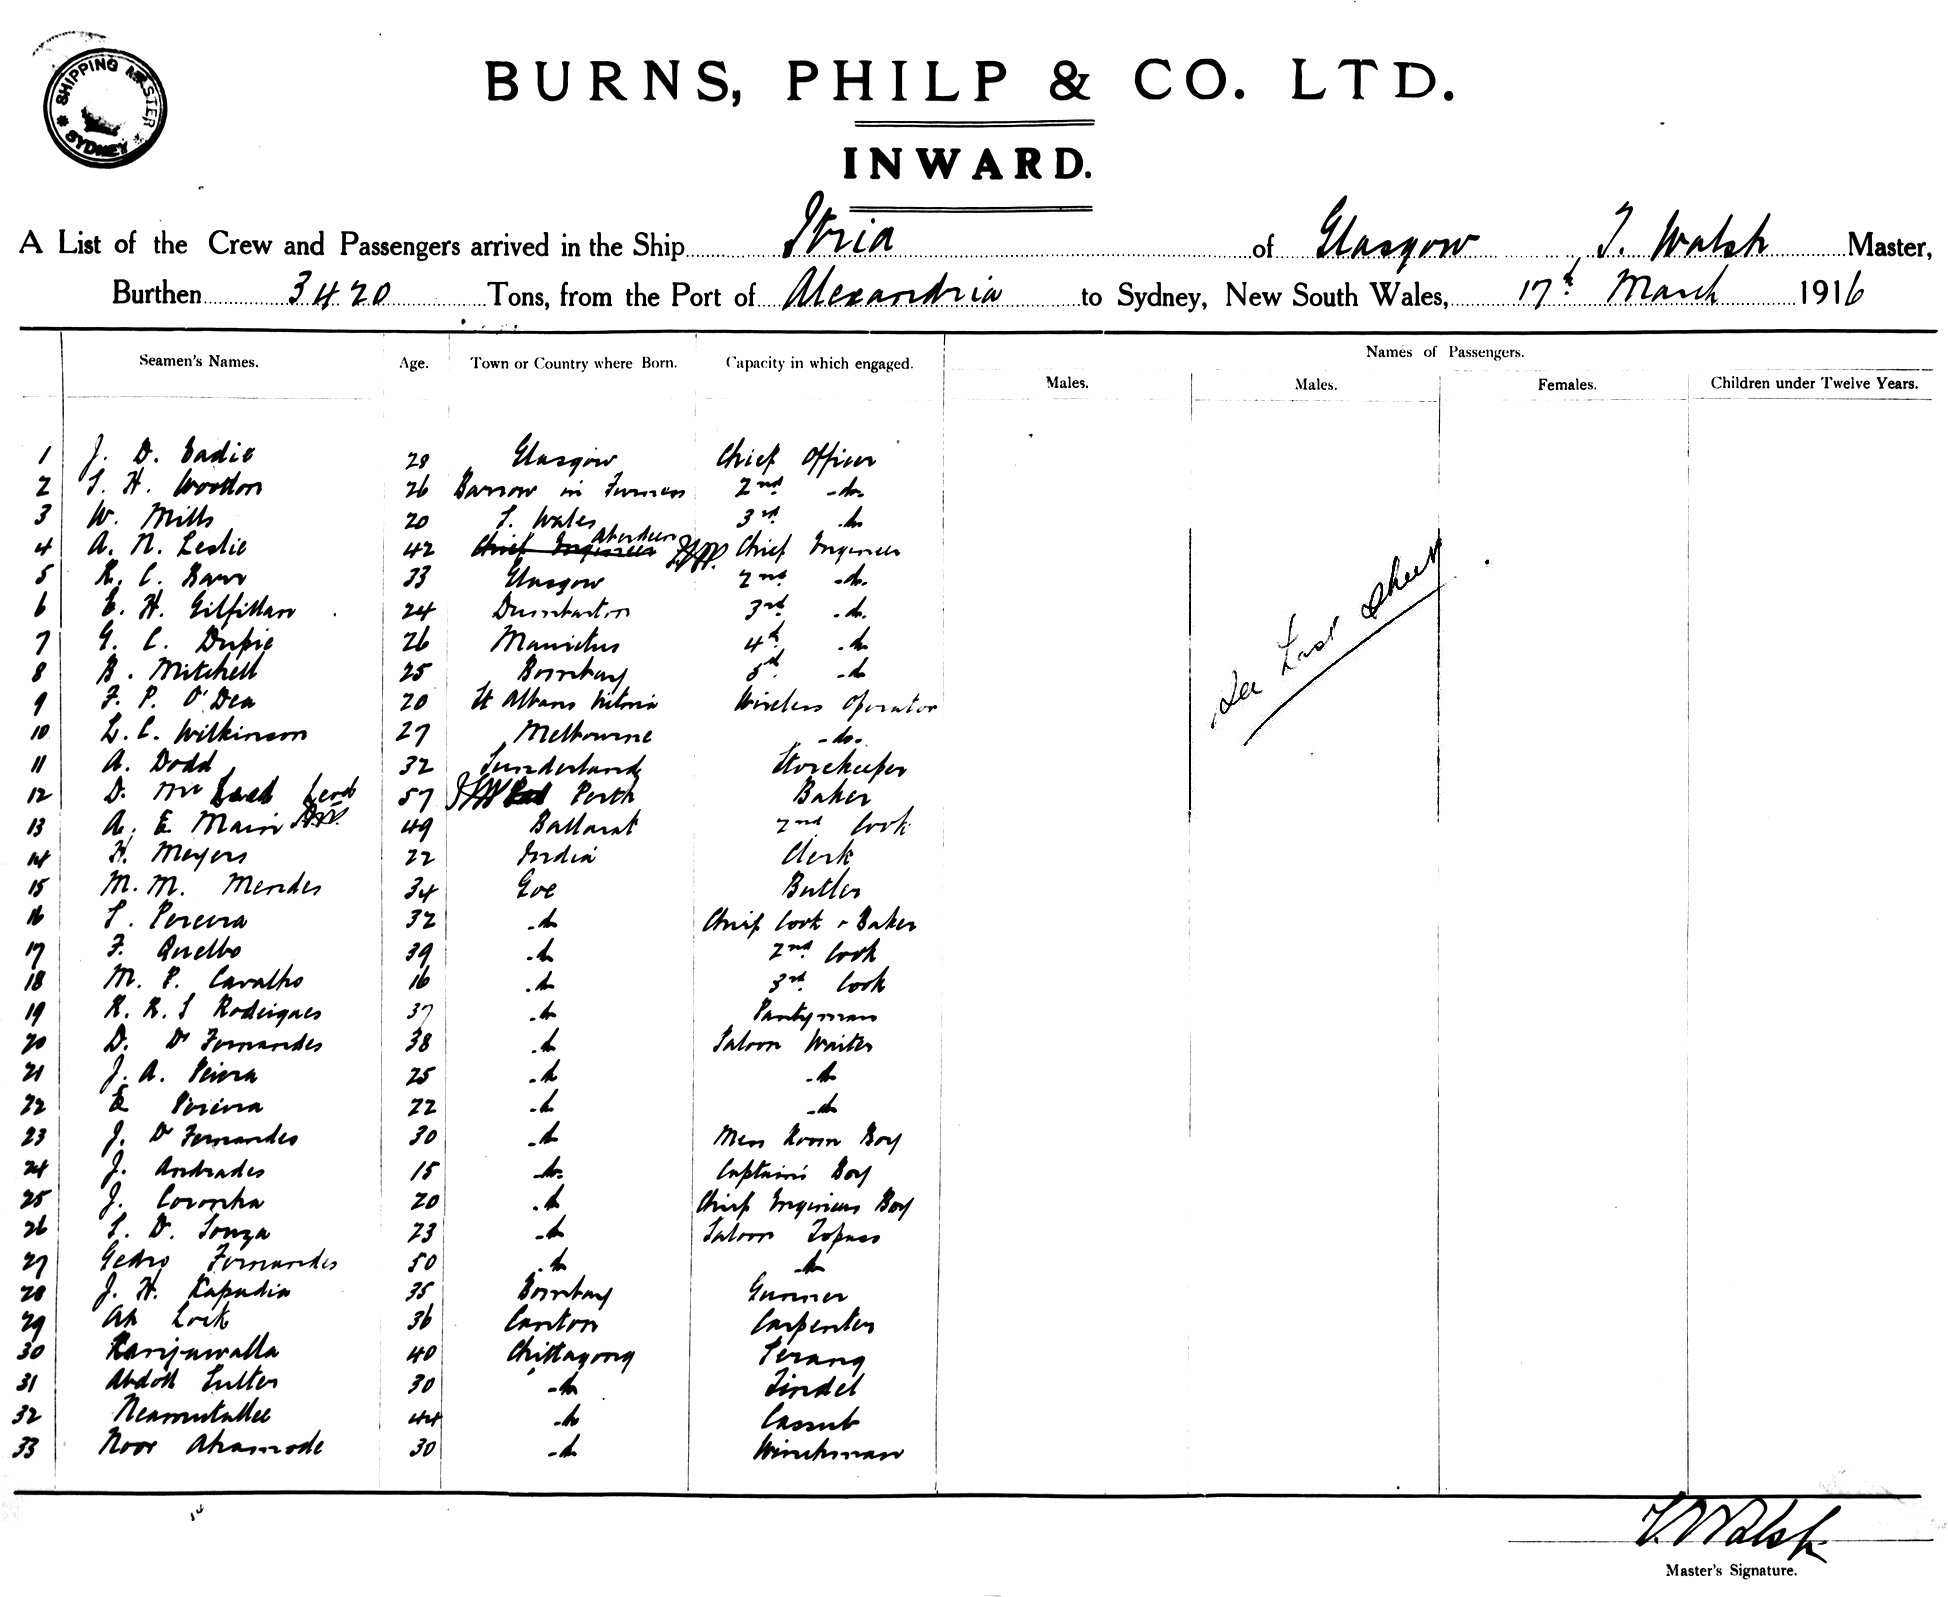 SHIPPING MASTER
SYDNEY
BURNS, PHILP & CO. LTD.
INWARD.
A List of the Crew and Passengers arrived in the Ship Itria of Glasgow, T. Walsh Master,
Burthen 3420 Tons, from the Port of Alexandria to Sydney, New South Wales, 17th March 1916
Names of Passengers.
Seamen's Names. Age. Town or Country where Born. Capacity in which engaged. Males. Males. Females. Children under Twelve Years.
1 J. D. Eadie 28 Glasgow Chief Officer
2 S. H. Wootton 26 Barrow in Furness 2nd -do-
3 W. Mills 20 S. Wales 3rd -do
4 A. N. Leslie 42 Chief Engineer Aberdeen Chief Engineer
5 R. C. Barr 33 Glasgow 2nd -do-
6 E. H. Gilfillan 24 Dumbarton 3rd -do.
7 G. C. Dupie 26 Mauritus 4th -do
8 B. Mitchell 25 Bombay 5th -do
9 F. P. O'Dea 20 St Albans Victoria Wireless Operator
10 L. C. Wilkinson 27 Melbourne -do-
11 A. Dodd 32 Sunderland Storekeeper
12 D. Mc Leod 57 Perth Baker
13 A. E. Main 49 Ballarat 2nd Cook
14 H. Meyers 22 India Clerk
15 M. M. Mendes 34 Goe Butler
16 S. Pereira 32 -do Chief Cook & Baker
17 F. 39 -do 2nd Cook
18 M. P. Carvalho 16 -do 3rd Cook
19 R. R. S Rodrigues 37 -do Pantryman
20 D. D' Fernandes 38 -do Saloon Waiter
21 J. A. Peirera 25 -do -do
22 E Pereira 22 -do -do
23 J. D' Fernandes 30 -do Mess Room Boy
24 J. Andrades 15 -do- Captain's Boy
25 J. Coronha 20 -do Chief Engineers Boy
26 S. D. Souza 23 -do Saloon Topass
27 Fernandes 50 -do -do
28 J. H. Kapadia 35 Bombay Gunner
29 Ah Lock 36 Canton Carpenter
30 40 Chittagong Serang
31 Abdool Sutter 30 -do Tindel
32 Neamutallee 44 -do Cassub
33 Noor Ahamode 30 -do Winchman
See Last Sheet
T. Walsh
Master's Signature.